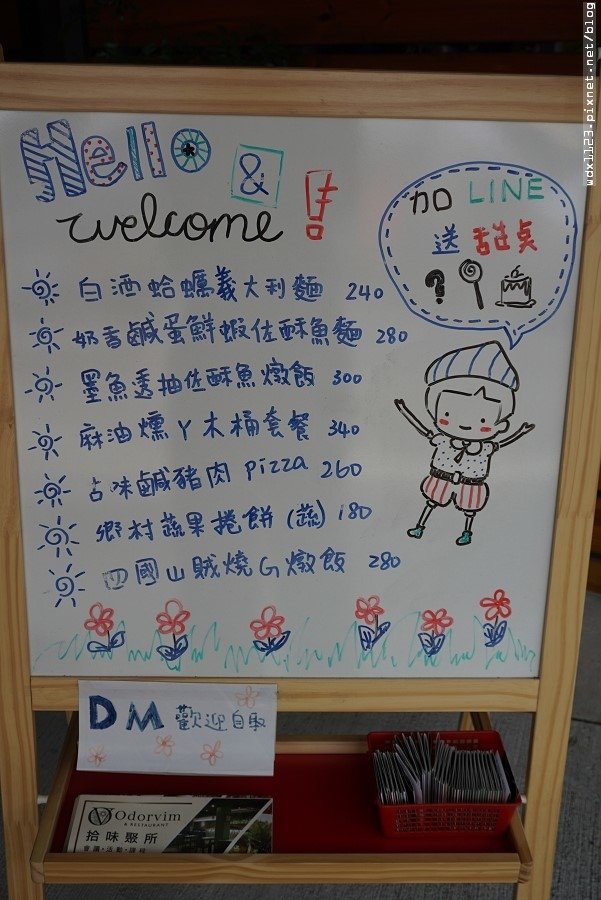 wdxl123.pixnet.net/blog
Hello
&
welcome !
加 LINE
送 甜桌
?
白酒蛤蠣義大利麵 240
奶香鹹蛋鮮蝦佐酥魚麵 280
墨魚透抽佐酥魚燉飯 300
麻油燻ㄚ木桶套餐 340
古味鹹豬肉 pizza 260
鄉村蔬果捲餅 (蔬) 180
四國山賊燒G燉飯 280
DM 歡迎自取
Odorvim
& RESTAURANT
拾味聚所
會議・活動・課程